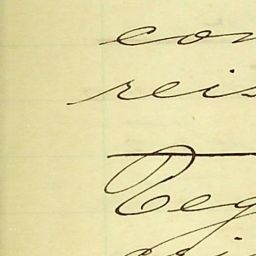 con
reis
Reg